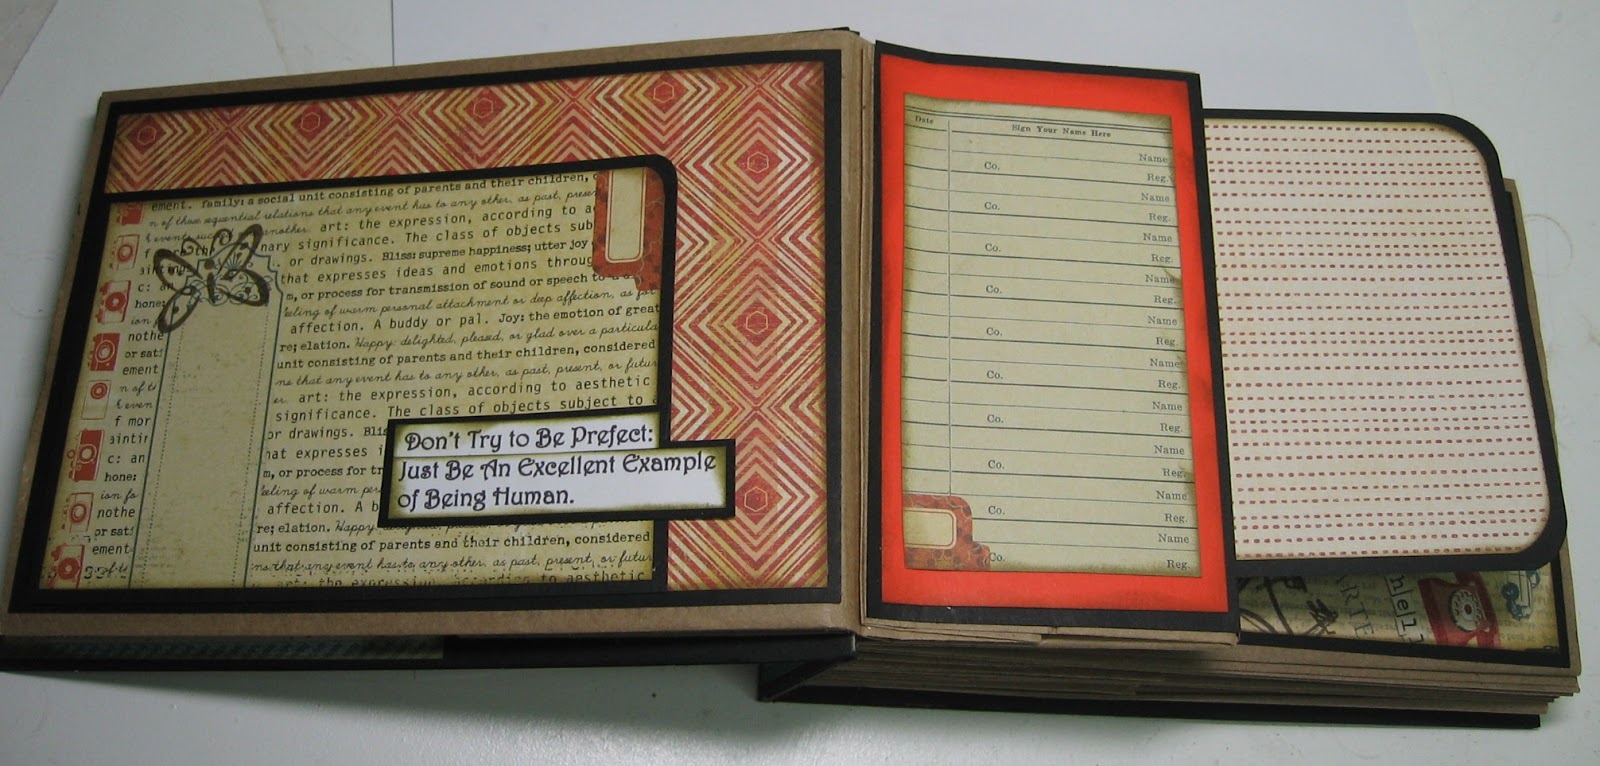 ement. family: a social unit consisting of parents and their children,
n of those sequential relations that any event has to any other, as past,
another. art: the expression, according to
significance. The class of objects
or drawings. Bliss: supreme happiness; utter joy
that expresses ideas and emotions
m, or process for transmission of sound or speech to
feeling of warm personal attachment or deep affection, as
affection. A buddy or pal. Joy: the emotion of great
re; elation. Happy: delighted, pleased, or glad over a particula
unit consisting of parents and their children, considered
ns that any event has to any other, as past, present, or futur
art: the expression, according to aesthetic
significance. The class of objects subject to
or drawings.
hat expresses
m, or process for
feeling of warm
affection. A
re; elation. Happy:
unit consisting of parents and their children, considered
ns that any event has to any other, as past, present, or futur
art: the expression, according to aesthetic
c: an
hone:
nothe
or sati
ement
n of ts
f mor
aintin
c: an
hone:
nothe
or sati
ement
Don't Try to Be Prefect:
Just Be An Excellent Example
of Being Human.
Date Sign Your Name Here
Name
Co. Reg.
Name
Co. Reg.
Name
Co. Reg.
Name
Co. Reg.
Name
Co. Reg.
Name
Co. Reg.
Name
Co. Reg.
Name
Co. Reg.
Name
Co. Reg.
Name
Co. Reg.